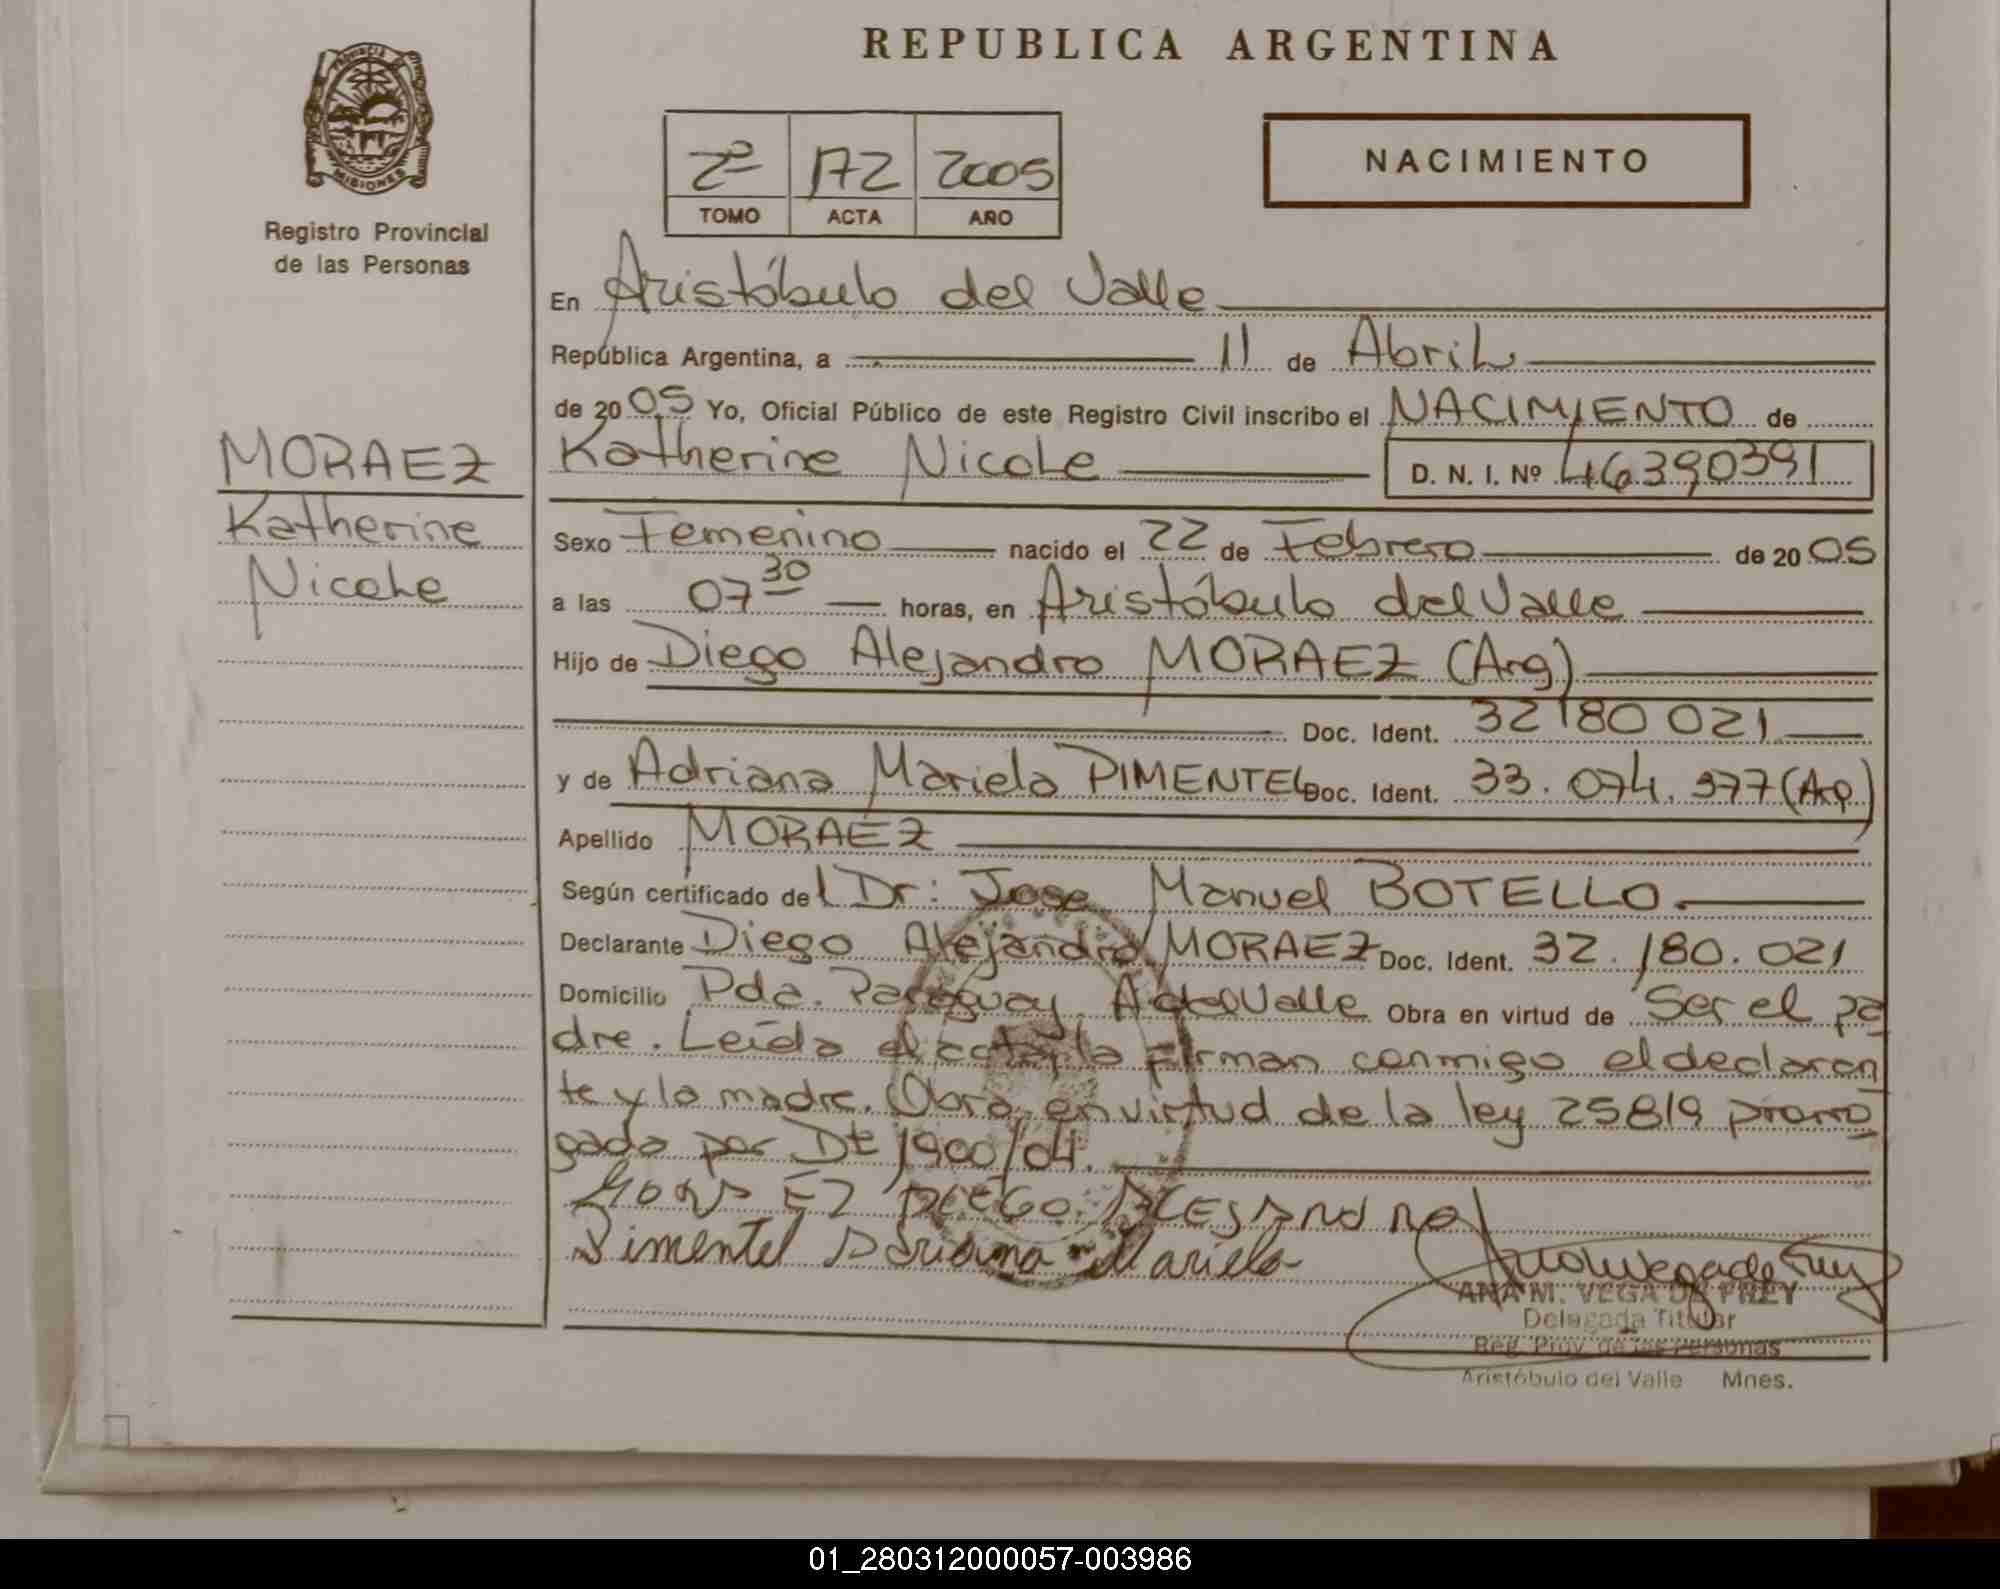 REPUBLICA ARGENTINA
PROVINCIA DE
MISIONES
Registro Provincial
de las Personas
2º 172 2005
TOMO ACTA AÑO
NACIMIENTO
En Aristóbulo del Valle
República Argentina, a 11 de Abril
de 2005 Yo, Oficial Público de este Registro Civil inscribo el NACIMIENTO de
MORAEZ
Katherine
Nicole
Katherine Nicole D. N. I. Nº 46390391
Sexo Femenino nacido el 22 de Febrero de 2005
a las 07 30 horas, en Aristóbulo del Valle
Hijo de Diego Alejandro MORAEZ (Arg)
Doc. Ident. 32180021
y de Adriana Mariela PIMENTEL Doc. Ident. 33.074.377 (Arg)
Apellido MORAEZ
Según certificado del Dr: Jose Manuel BOTELLO.
Declarante Diego Alejandro MORAEZ Doc. Ident. 32.180.021
Domicilio Pda. Paraguay, A del Valle Obra en virtud de Ser el pa
dre. Leída el acta, la firman conmigo el declaran
te y la madre. Obra en virtud de la ley 25819 prorro
gada por Dt 1900/04.
Moraez Diego Alejandro
Pimentel Adriana Mariela
ANA M. VEGA DE FREY
Delegada Titular
Reg. Prov. de las Personas
Aristóbulo del Valle Mnes.
01_280312000057-003986